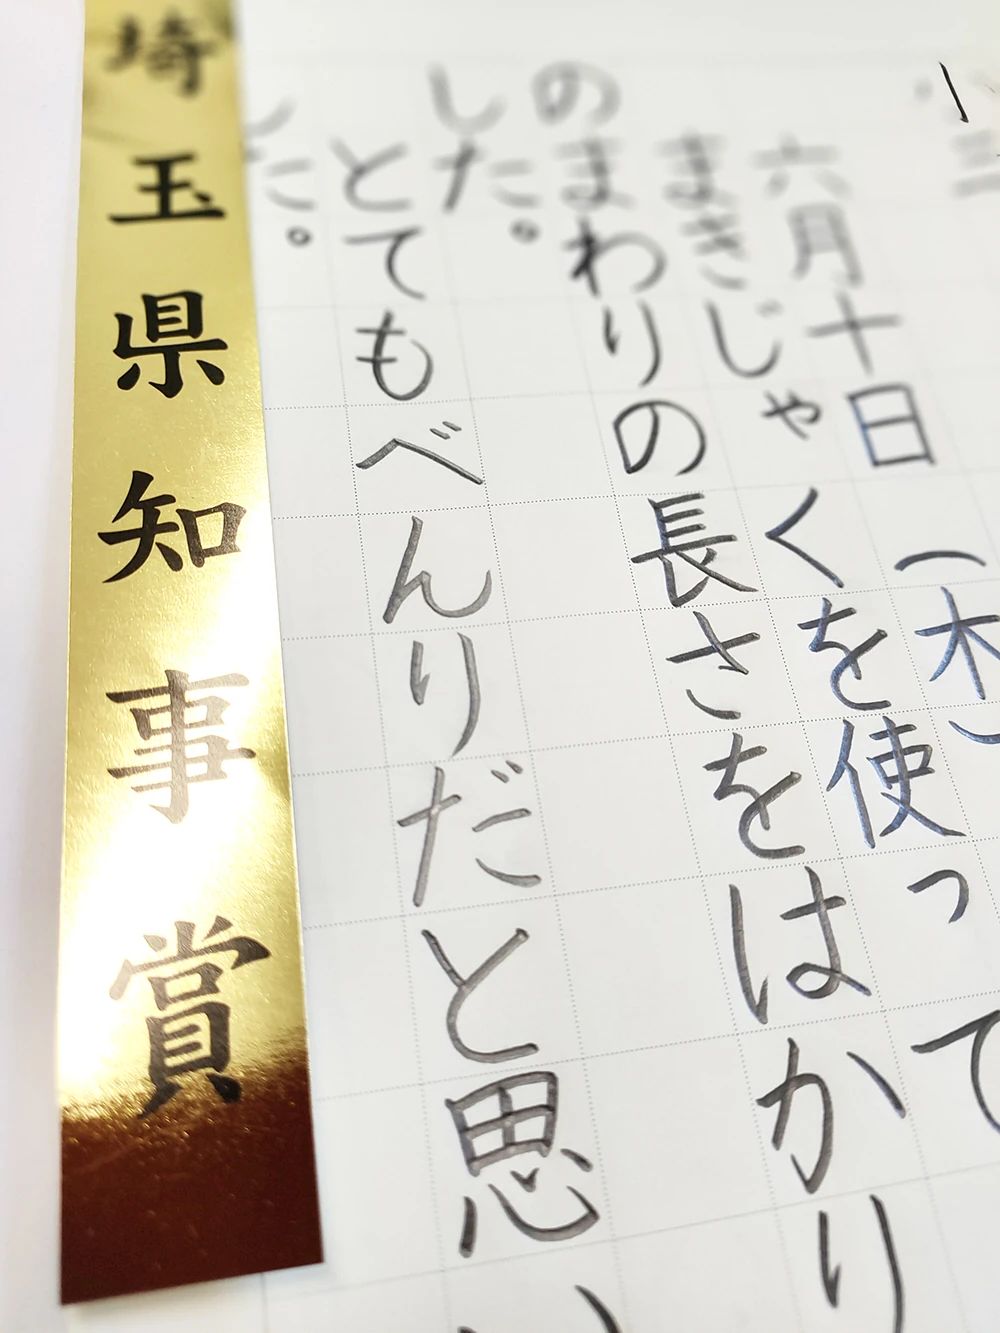 三
六月十日（木）
まきじゃくを使って
のまわりの長さをはかり
した。
とてもべんりだと思い
した。
埼玉県知事賞